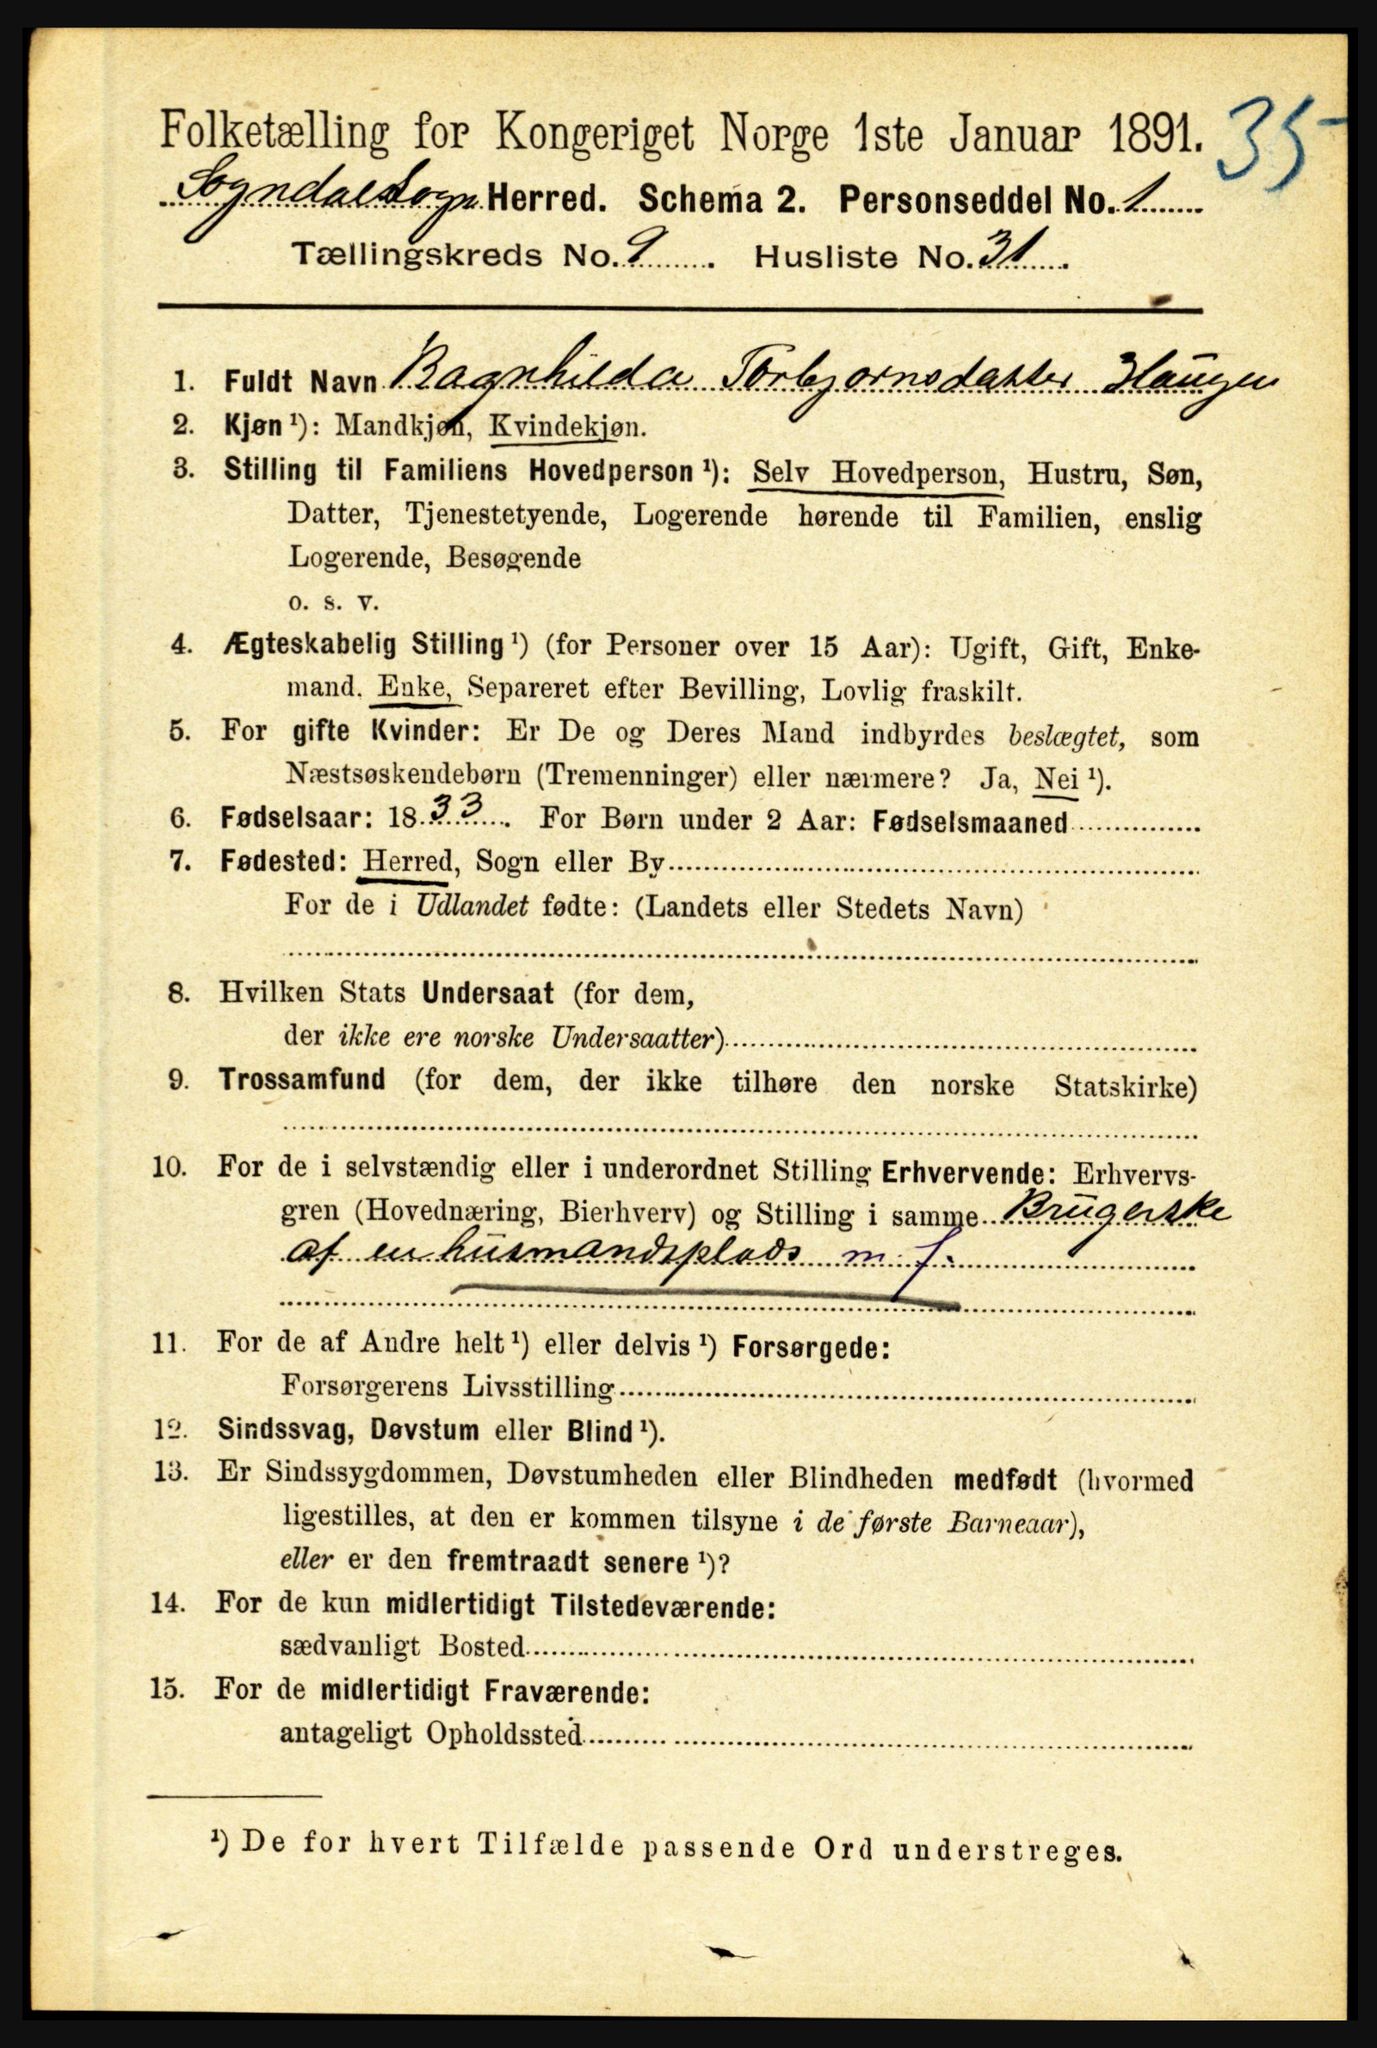 Folketælling for Kongeriget Norge 1ste Januar 1891. 35
Sogndal Sogn Herred. Schema 2. Personseddel No. 1
Tællingskreds No. 9. Husliste No. 31.
1. Fuldt Navn Ragnhilda Torbjørnsdatter Haugen
2. Kjøn ¹): Mandkjøn, Kvindekjøn.
3. Stilling til Familiens Hovedperson ¹): Selv Hovedperson, Hustru, Søn,
Datter, Tjenestetyende, Logerende hørende til Familien, enslig
Logerende, Besøgende
o. s. v.
4. Ægteskabelig Stilling ¹) (for Personer over 15 Aar): Ugift, Gift, Enke-
mand, Enke, Separeret efter Bevilling, Lovlig fraskilt.
5. For gifte Kvinder: Er De og Deres Mand indbyrdes beslægtet, som
Næstsøskendebørn (Tremenninger) eller nærmere? Ja, Nei ¹).
6. Fødselsaar: 1833. For Børn under 2 Aar: Fødselsmaaned
7. Fødested: Herred, Sogn eller By
For de i Udlandet fødte: (Landets eller Stedets Navn)
8. Hvilken Stats Undersaat (for dem,
der ikke ere norske Undersaatter)
9. Trossamfund (for dem, der ikke tilhøre den norske Statskirke)
10. For de i selvstændig eller i underordnet Stilling Erhvervende: Erhvervs-
gren (Hovednæring, Bierhverv) og Stilling i samme Brugerske
af en husmandsplads m. f.
11. For de af Andre helt ¹) eller delvis ¹) Forsørgede:
Forsørgerens Livsstilling
12. Sindssvag, Døvstum eller Blind ¹).
13. Er Sindssygdommen, Døvstumheden eller Blindheden medfødt (hvormed
ligestilles, at den er kommen tilsyne i de første Barneaar),
eller er den fremtraadt senere ¹)?
14. For de kun midlertidigt Tilstedeværende:
sædvanligt Bosted
15. For de midlertidigt Fraværende:
antageligt Opholdssted
¹) De for hvert Tilfælde passende Ord understreges.